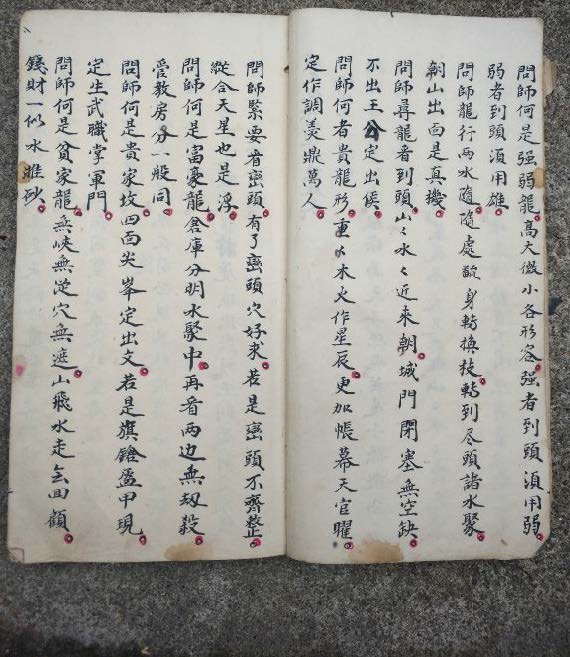 問師何是强弱龍高大微小各形容强者到頭須用弱
弱者到頭須用雄
問師龍行两水隨隨處龍身轉換枝轉到尽頭諸水聚
朝山出面是真機
問師尋龍看到頭山〻水〻近來朝城門閉塞無空缺
不出王公定出侯
問師何者貴龍形重〻木火作星辰更加帳幕天官曜
定作調羹鼎萬人
問師緊要看巒頭有了巒頭穴好求若是巒頭不齊整
縱合天星也是浮
問師何是富豪龍倉庫分明水聚中再看两边無刼殺
管教房分一般同
問師何是貴家坟四面尖峯定出文若是旗鎗盔甲現
定生武職掌軍門
問師何是貧家龍無峡無从穴無遮山飛水走無回顧
錢財一似水推砂